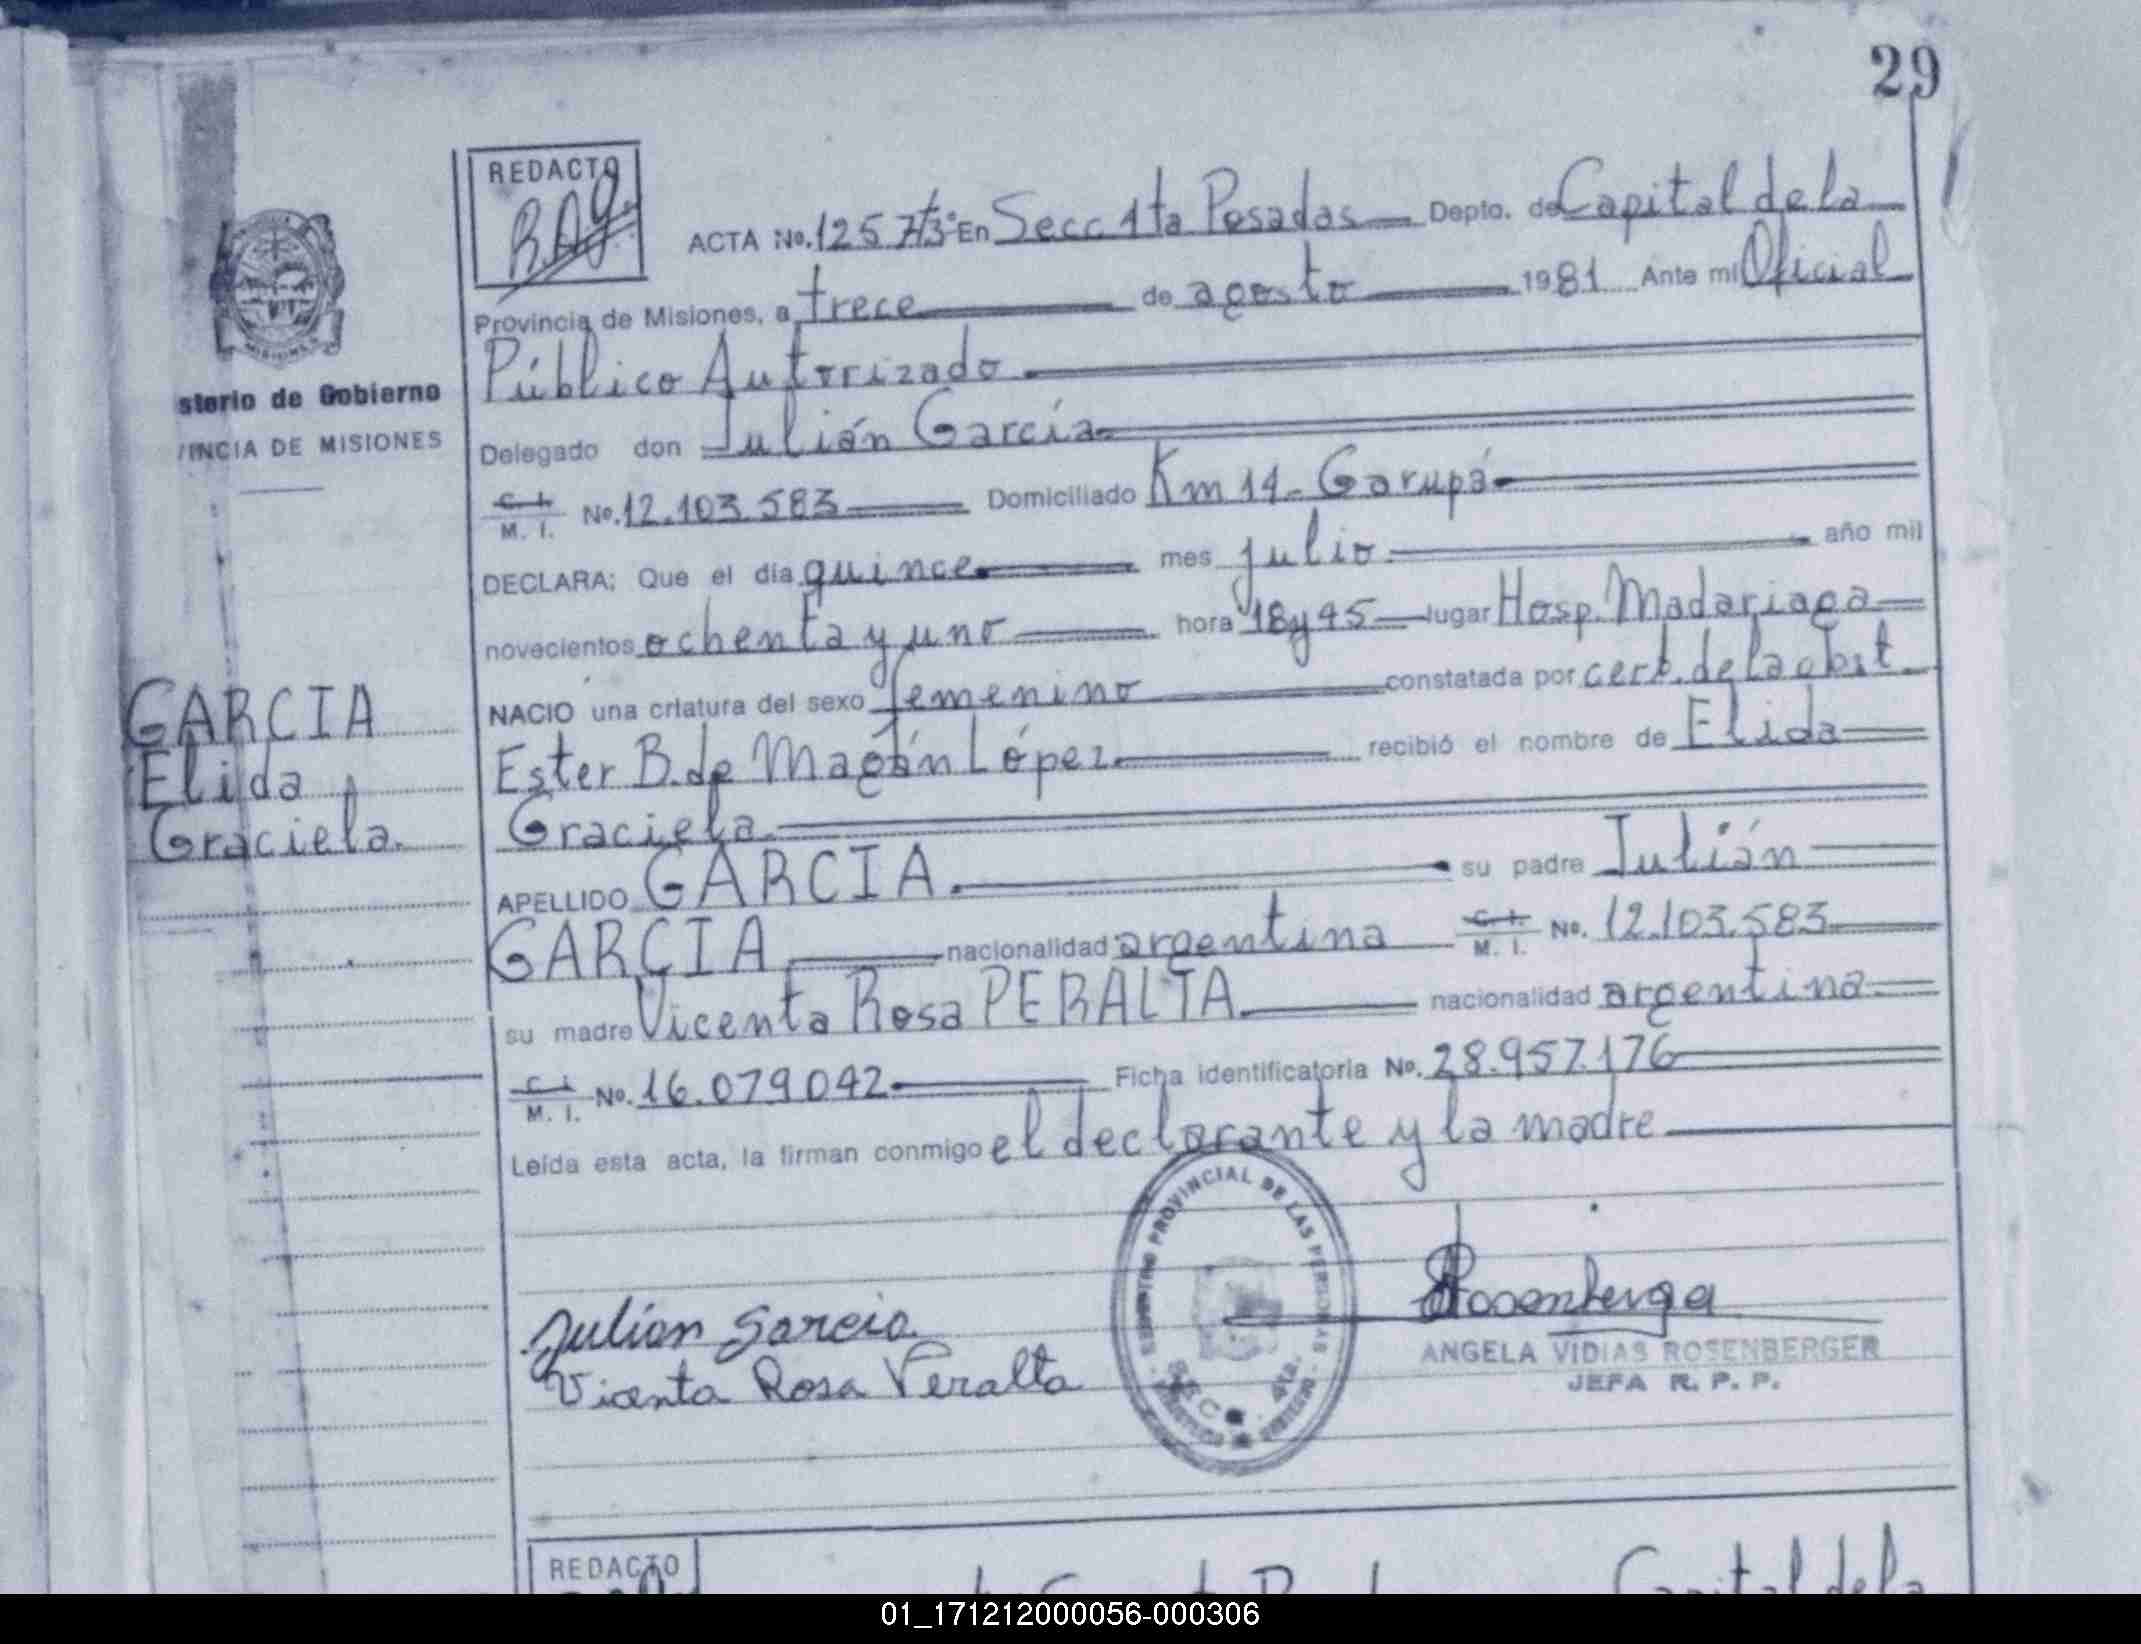 29
REDACTO
ACTA No. 1257/T3° En Secc 1ta Posadas Depto. de Capital de la
Provincia de Misiones, a trece de agosto 1981 Ante mi Oficial
Público Autorizado
sterio de Gobierno
VINCIA DE MISIONES
Delegado don Julián García
C. I. M. I. No. 12.103.583 Domiciliado Km 14- Garupá
DECLARA: Que el día quince mes julio año mil
novecientos ochenta y uno hora 18y45 lugar Hosp. Madariaga
NACIO una criatura del sexo femenino constatada por cert. de la obst
Ester B. de Magán López recibió el nombre de Elida
Graciela
GARCIA
Elida
Graciela.
APELLIDO GARCIA su padre Julián
GARCIA nacionalidad argentina C. I. M. I. No. 12.103.583
su madre Vicenta Rosa PERALTA nacionalidad argentina
C. I. M. I. No. 16.079042 Ficha identificatoria No. 28.957.176
Leída esta acta, la firman conmigo el declarante y la madre
REGISTRO PROVINCIAL DE LAS PERSONAS
SECC
Julian Garcia
Vicenta Rosa Peralta
ANGELA VIDIAS ROSENBERGER
JEFA R. P. P.
REDACTO
Capital de la
01_171212000056-000306